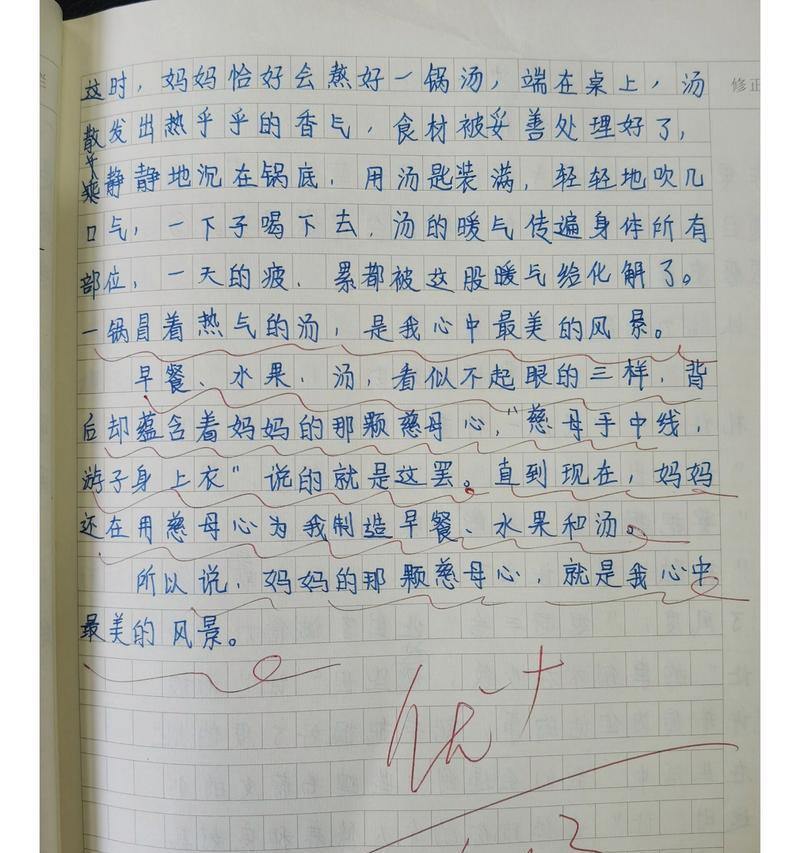 这时，妈妈恰好会熬好一锅汤，端在桌上，汤
散发出热乎乎的香气，食材被妥善处理好了，
乖静静地沉在锅底，用汤匙装满，轻轻地吹几
口气，一下子喝下去，汤的暖气传遍身体所有
部位，一天的疲、累都被这股暖气给化解了。
一锅冒着热气的汤，是我心中最美的风景。
早餐、水果、汤，看似不起眼的三样，背
后却蕴含着妈妈的那颗慈母心，"慈母手中线，
游子身上衣"说的就是这罢。直到现在，妈妈
还在用慈母心为我制造早餐、水果和汤。
所以说，妈妈的那颗慈母心，就是我心中
最美的风景。
优+
修正